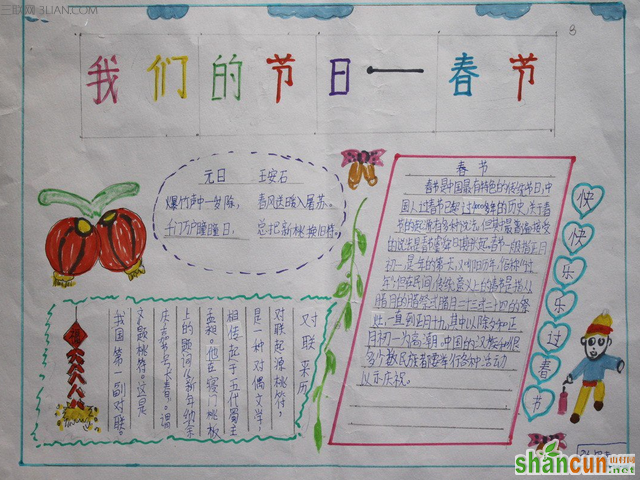 三联网 3LIAN.COM
8
我们的节日——春节
元日 王安石
爆竹声中一岁除, 春风送暖入屠苏。
千门万户曈曈日, 总把新桃换旧符。
春节
春节是中国最有特色的传统节日,中
国人过春节已超过4000多年的历史,关于春
节的起源有多种说法,但
的说法是春节由
初一,是年的第一天,又叫阴历年,俗称“过
年”;但在民间,传统意义上的春节是指从
腊月的腊祭或腊月二十三或二十四的祭
灶,一直到正月十九,其中以除夕和正
月初一为高潮。中国的汉族和很
多少数民族都要举行各种活动
以示庆祝。
快快乐乐过春节
对联来历
对联起源桃符,
是一种对偶文学,
相传起于五代蜀主
孟昶。他在寝门桃板
上的题词“新年纳余
庆,嘉节号长春”,谓
文“题桃符”。这是
我国第一副对联。
福
shancun.net
山村网